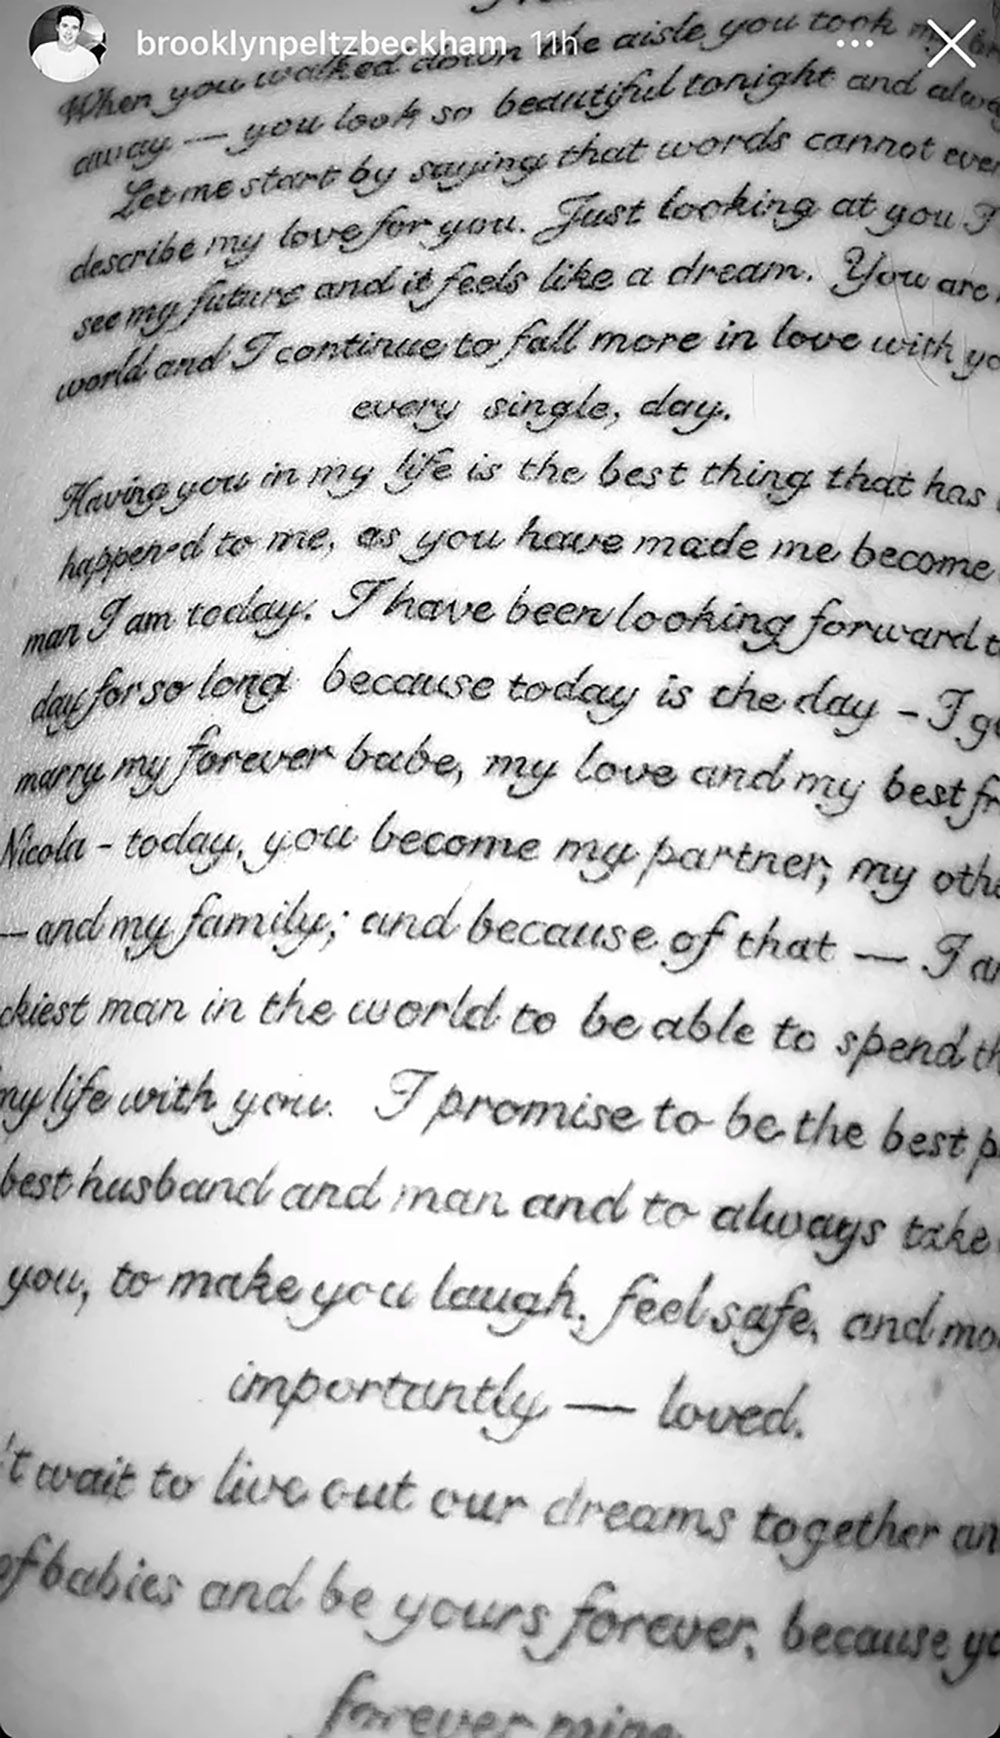 brooklynpeltzbeckham 11h
When you walked down the aisle you took my
away — you look so beautiful tonight and alwa
Let me start by saying that words cannot ever
describe my love for you. Just looking at you I
see my future and it feels like a dream. You are
world and I continue to fall more in love with yo
every single, day.
Having you in my life is the best thing that has
happened to me, as you have made me become
man I am today. I have been looking forward t
day for so long because today is the day - I ge
marry my forever babe, my love and my best fr
Nicola - today, you become my partner, my othe
— and my family; and because of that — I am
ckiest man in the world to be able to spend th
my life with you. I promise to be the best p
best husband and man and to always take
you, to make you laugh, feel safe, and mo
importantly — loved.
't wait to live out our dreams together an
of babies and be yours forever, because yo
forever mine